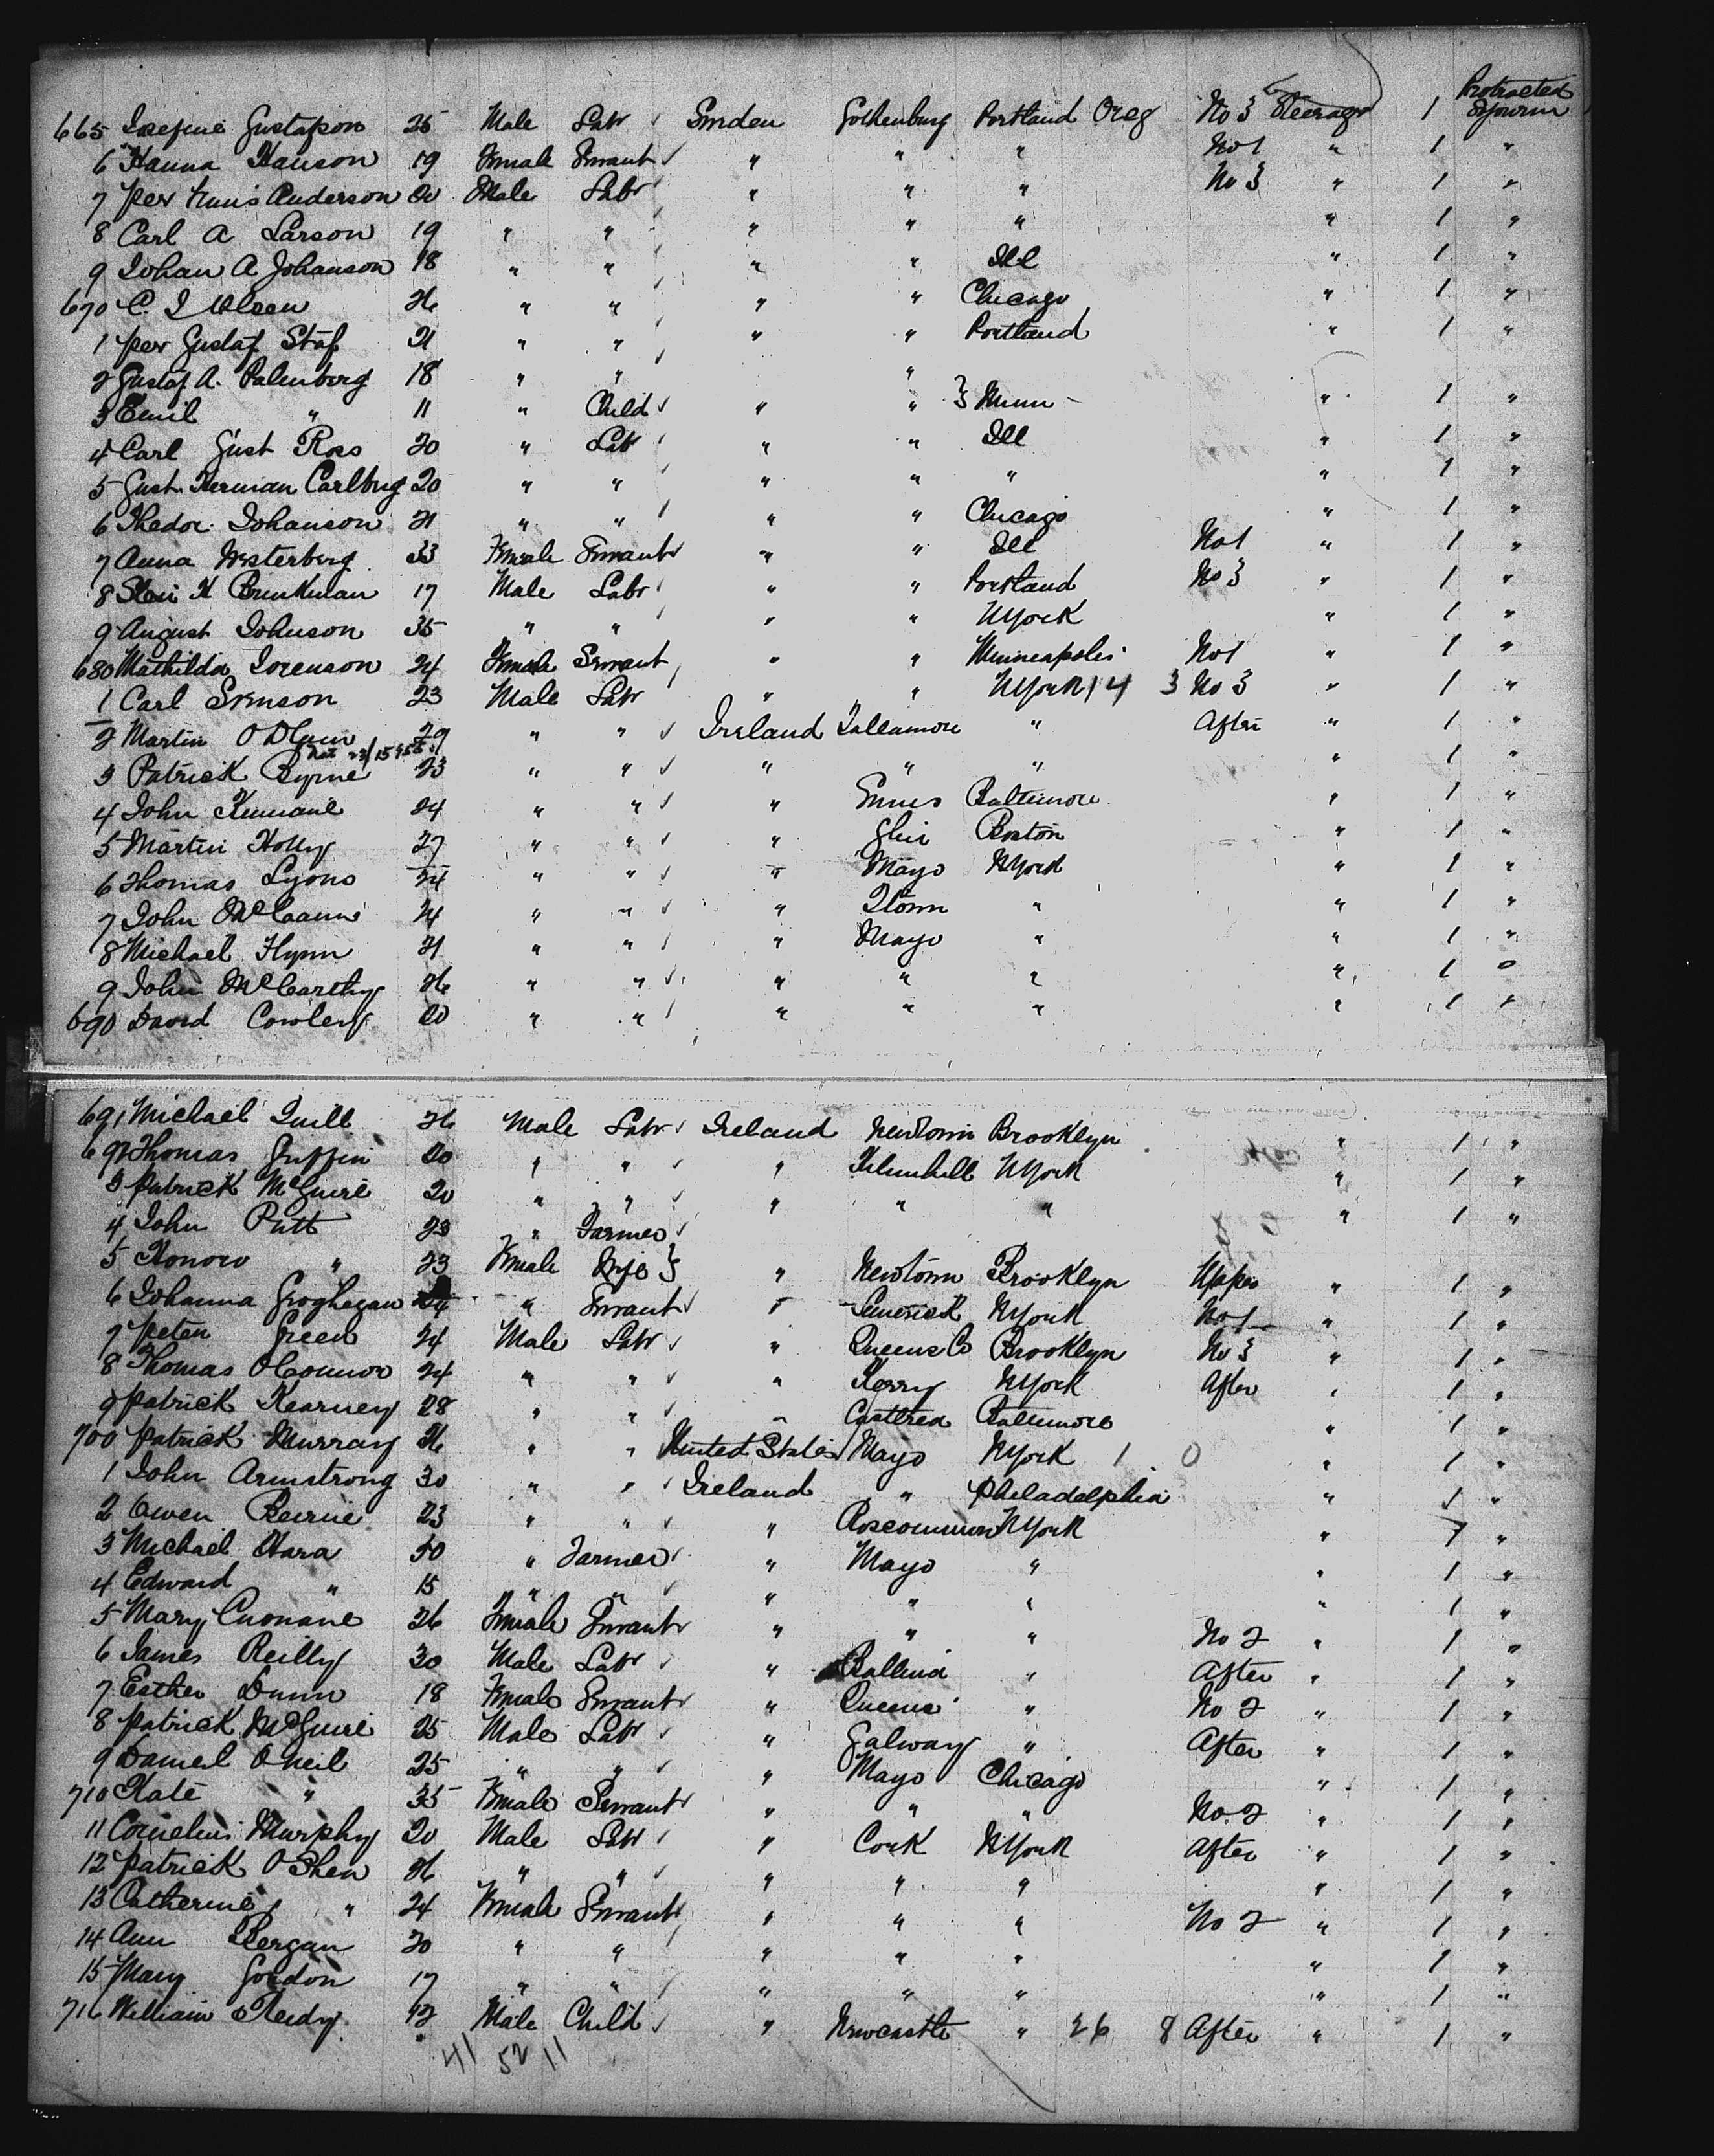 665 Josefine Gustafson 25 Male Labr Sweden Gothenburg Portland Oreg No 3 Steerage 1 Protracted Sojourn
6 Hanna Hanson 19 Female Servant " " " No 1 " 1 "
7 Per Anderson 20 Male Labr " " " No 3 " 1 "
8 Carl A Larson 19 " " " " " " 1 "
9 Johan A Johanson 18 " " " " Ill " 1 "
670 C. J Olsen 26 " " " " Chicago " 1 "
1 Per Gustaf Staf 21 " " " " Portland " 1 "
2 Gustaf A. Palmberg 18 " " "
3 Emil " 11 " Child " " } Minn " 1 "
4 Carl Gust Ross 20 " Labr " " Ill " 1 "
5 Gust. Herman Carlbrg 20 " " " " " " 1 "
6 Thedor Johanson 21 " " " " Chicago " 1 "
7 Anna Westerberg 33 Female Servant " " Ill No 1 " 1 "
8 H Brinkman 17 Male Labr " " Portland No 3 " 1 "
9 August Johnson 35 " " " " NYork " 1 "
680 Mathilda Sorenson 24 Female Servant " " Minneapolis No 1 " 1 "
1 Carl Svenson 23 Male Labr " " NYork 14 3 No 3 " 1 "
2 Martin 29 " " Ireland Tullamore " After " 1 "
3 Patrick Byrne 23 " " " " " " 1 "
4 John Kinnane 24 " " " Ennis Baltimore " 1 "
5 Martin Holly 27 " " " Glin Boston " 1 "
6 Thomas Lyons 24 " " " Mayo NYork " 1 "
7 John McCann 24 " " " Qtown " " 1 "
8 Michael Flynn 21 " " " Mayo " " 1 "
9 John McCarthy 26 " " " " " " 1 "
690 David Cowley 20 " " " " " " 1 "
691 Michael Quill 26 Male Labr Ireland Newtown Brooklyn " 1 "
692 Thomas Griffin 20 " " " NYork " 1 "
3 Patrick McGuire 20 " " " " " " 1 "
4 John Putt 23 " Farmer
5 Honor " 23 Female Wife } " Newtown Brooklyn Upper " 1 "
6 Johanna Groghegan 24 " Servant " Limerick NYork No 1 " 1 "
7 Peter Green 24 Male Labr " Queens Co Brooklyn No 3 " 1 "
8 Thomas OConnor 24 " " " Kerry NYork After " 1 "
9 Patrick Kearney 28 " " " Castlrea Baltimore " 1 "
700 Patrick Murray 26 " " United States Mayo NYork 1 0 " 1 "
1 John Armstrong 30 " " Ireland " Philadelphia " 1 "
2 Owen Beirne 23 " " " Roscommon NYork " 1 "
3 Michael Hara 50 " Farmer " Mayo " " 1 "
4 Edward " 15 " " " " " " 1 "
5 Mary Cuonane 26 Female Servant " " " No 2 " 1 "
6 James Reilly 30 Male Labr " Ballina " After " 1 "
7 Esther Dunn 18 Female Servant " Queens " No 2 " 1 "
8 Patrick McGuire 25 Male Labr " Galway " After " 1 "
9 Daniel ONeil 25 " " " Mayo Chicago " 1 "
710 Kate " 35 Female Servant " " " No. 2 " 1 "
11 Cornelius Murphy 20 Male Labr " Cork NYork After " 1 "
12 Patrick OShea 26 " " " " " " 1 "
13 Catherine " 24 Female Servant " " " No 2 " 1 "
14 Ann Bergan 20 " " " " " " 1 "
15 Mary Gordon 17 " " " " " " 1 "
716 William Reidy 12 Male Child " Newcastle " 26 8 After " 1 "
41 52 11